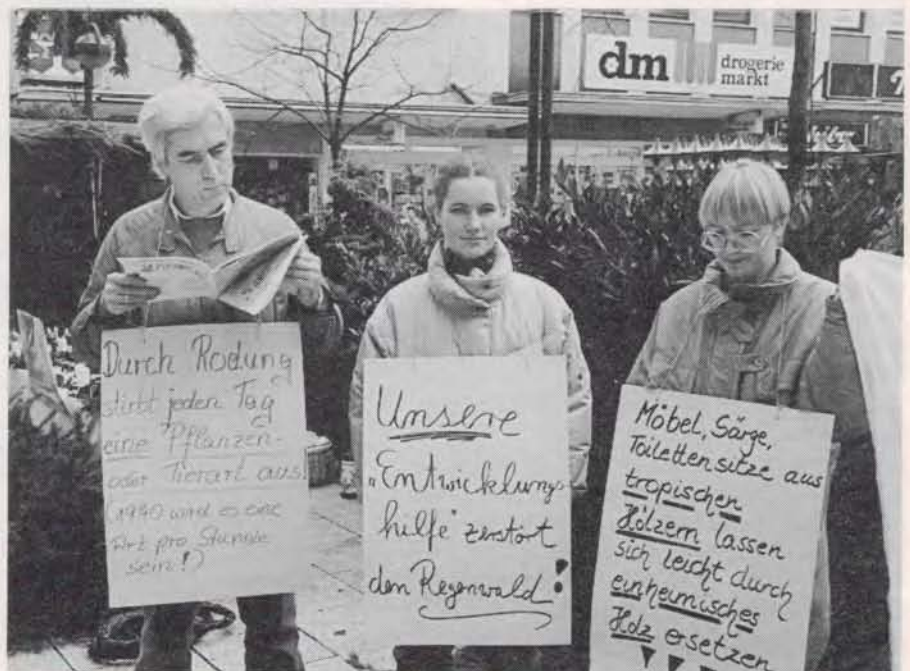 dm
drogerie
markt
Durch Rodung
stirbt jeden Tag
eine Pflanzen-
oder Tierart aus!
(1990 wird es eine
Art pro Stunde
sein!)
Unsere
„Entwicklungs-
hilfe" zerstört
den Regenwald!
Möbel, Särge,
Toilettensitze aus
tropischen
Hölzern lassen
sich leicht durch
einheimisches
Holz ersetzen